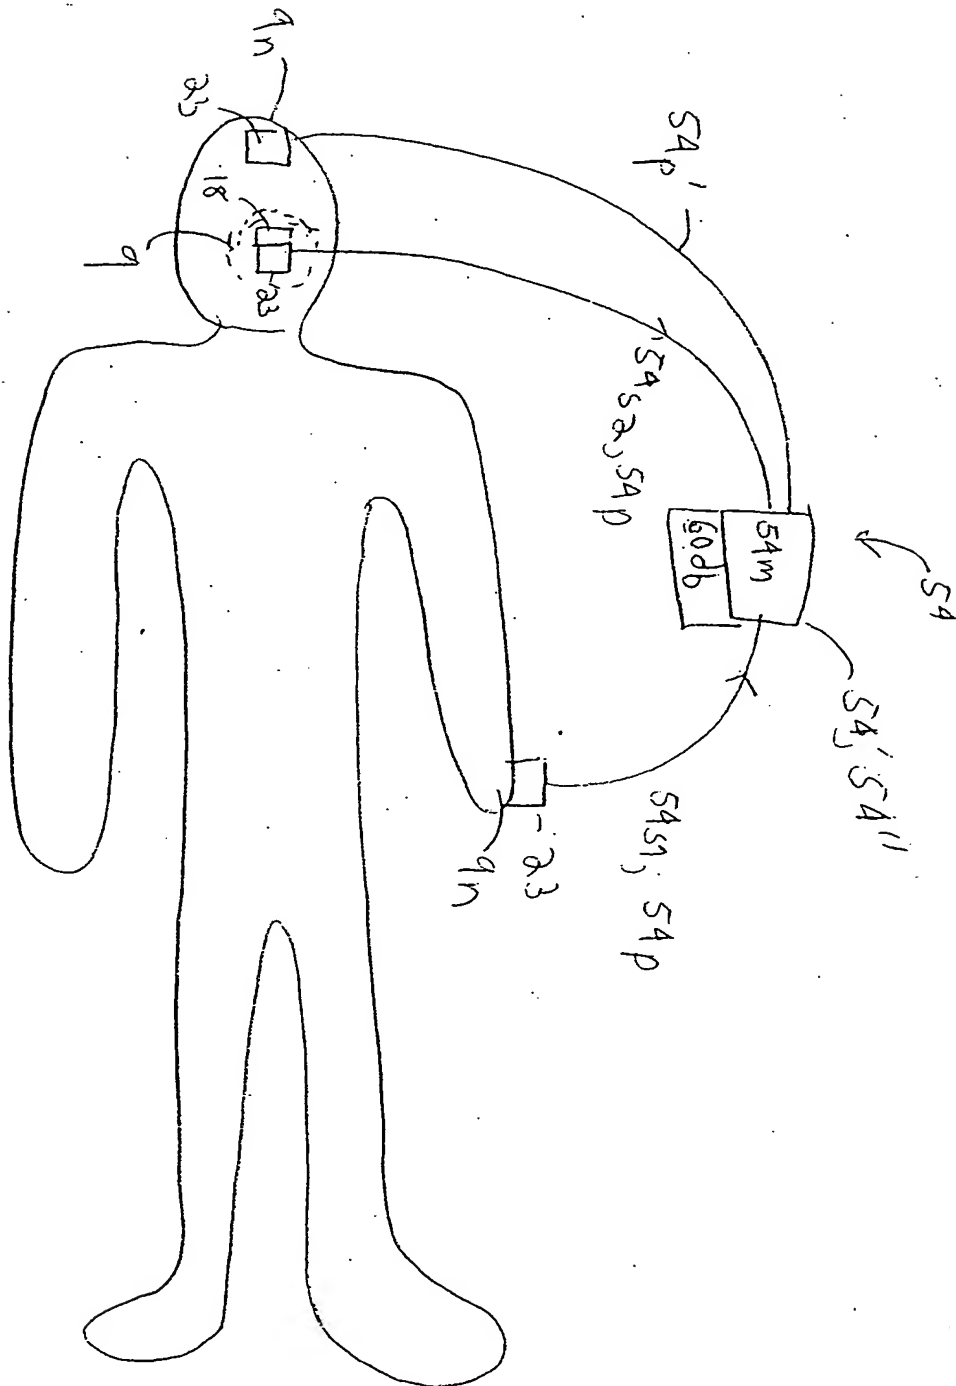 9n
23
18
9
23
54p'
54s2, 54p
54
54m
60db
54', 54''
54s1, 54p
23
9n